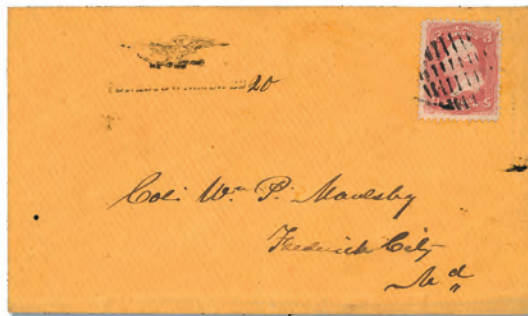 3 3
20
Col: Wm P. Maulsby
Frederick City
Md